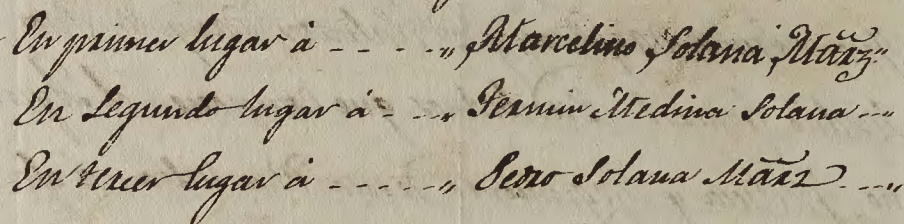 En primer lugar á - - - - „ Marcelino Solana Mãrz „
En Segundo lugar á - - - „ Fermin Medina Solana - - „
En tercer lugar á - - - - - „ Pedro Solana Mãrz - - - „